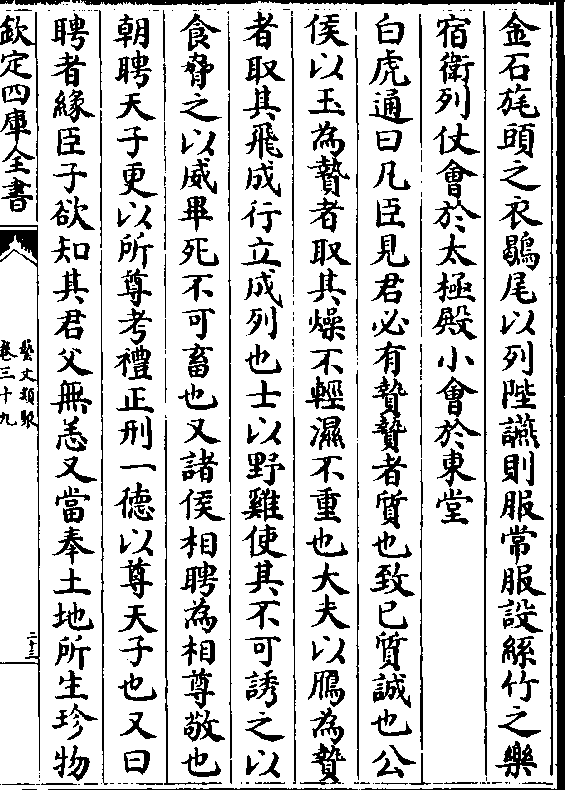 金石旄頭之衣鶡尾以列陛讌則服常服設絲竹之樂
宿衛列仗會於太極殿小會於東堂
白虎通曰凡臣見君必有贄贄者質也致已質誠也公
侯以玉為贄者取其燥不輕濕不重也大夫以鴈為贄
者取其飛成行立成列也士以野雞使其不可誘之以
食脅之以威畢死不可畜也又諸侯相聘為相尊敬也
朝聘天子更以所尊考禮正刑一德以尊天子也又曰
聘者緣臣子欲知其君父無恙又當奉土地所生珍物
欽定四庫全書
藝文類聚
卷三十九
二十三